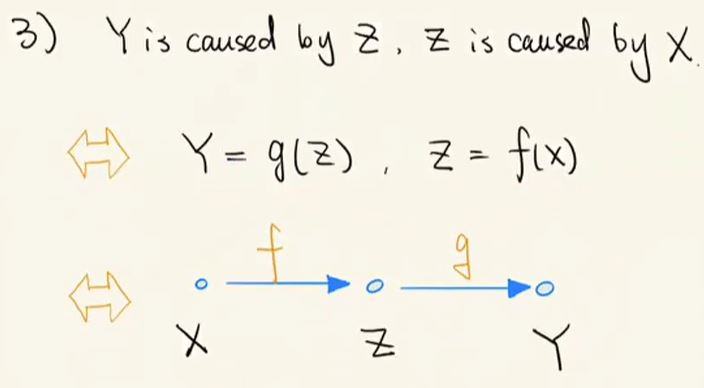 3) Y is caused by Z, Z is caused by X.
⇔ Y = g(Z), Z = f(X)
f g
⇔
X Z Y